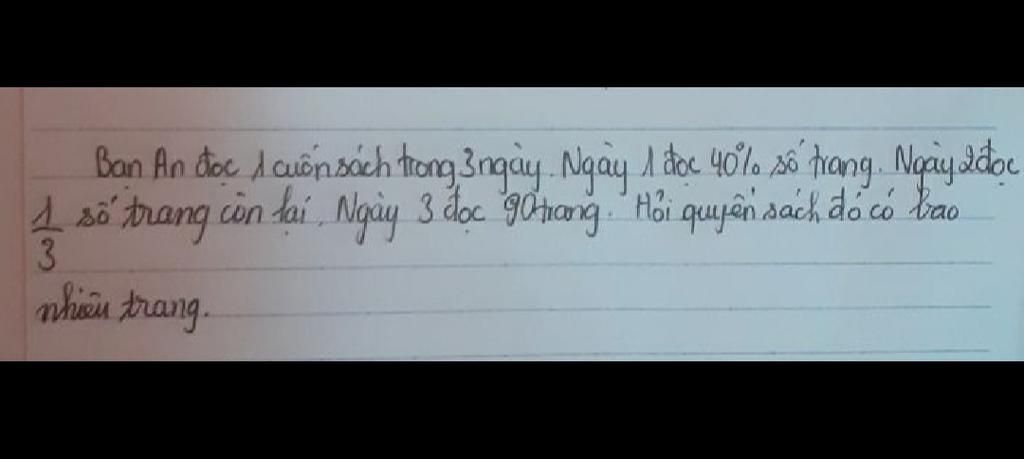 Bạn An đọc 1 cuốn sách trong 3 ngày. Ngày 1 đọc 40% số trang. Ngày 2 đọc
1/3 số trang còn lại. Ngày 3 đọc 90 trang. Hỏi quyển sách đó có bao
nhiêu trang.